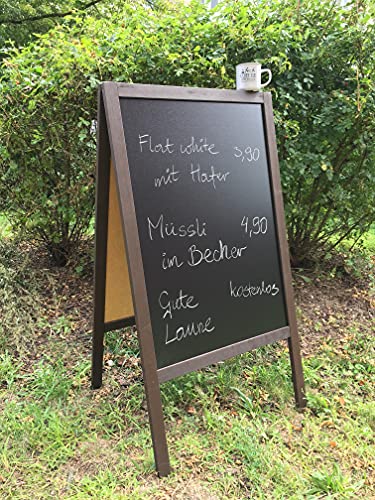 Flat white 3,90
mit Hafer
Müssli 4,90
im Becher
Gute kostenlos
Laune